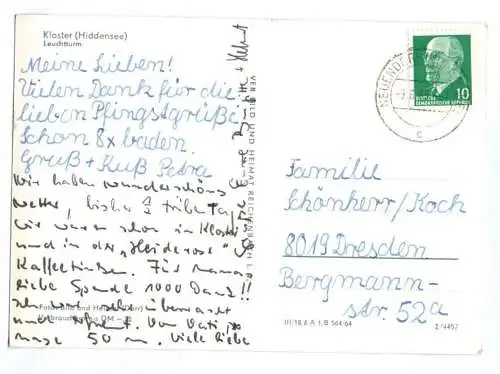 Kloster (Hiddensee)
Leuchtturm
Meine Lieben!
Vielen Dank für die
lieben Pfingstgrüße.
Schon 8x baden.
Gruß + Kuß Petra
Wir haben wunderschönes
Wetter, bisher 1/2 trüber Tag,
wir waren schon in Kloster
und in der "Heiderose"
Kaffeetrinken. Für Mama
liebe Spende 1000 Dank!!
sehr überrascht
und erfreut. Von Vati,
50 m. Viele liebe
Foto: Bild und Heimat
Verbraucherpreis DM
VEB BILD UND HEIMAT REICHENBACH
NEUENDORF
10
DEUTSCHE
DEMOKRATISCHE REPUBLIK
Familie
Schönherr/Koch
8019 Dresden
Bergmann-
str. 52a
III/18/6 A 1/B 564/64
2/4457